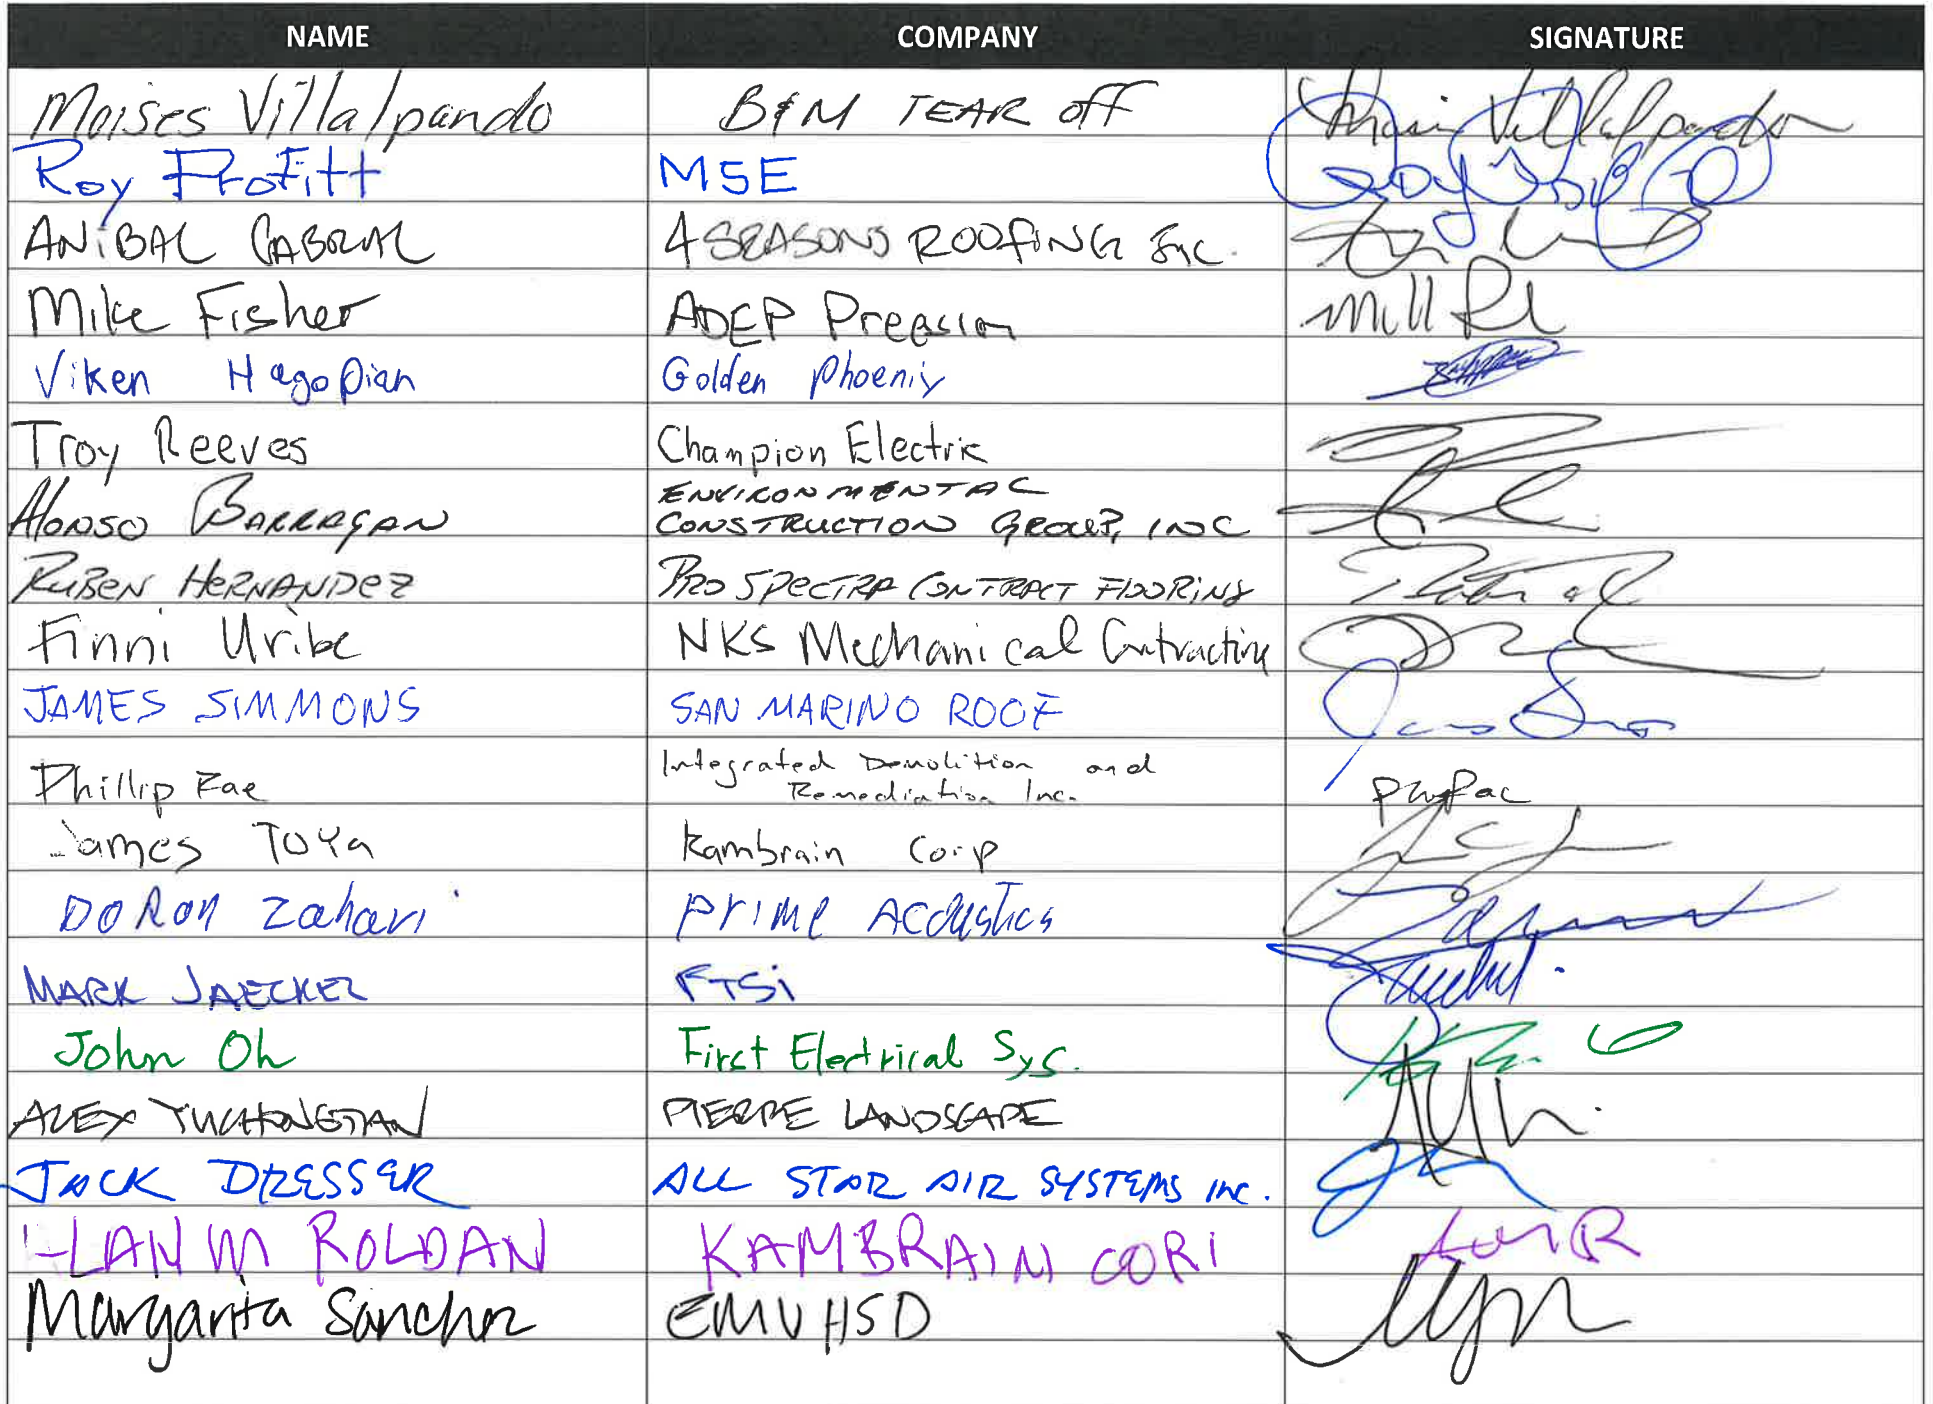 NAME COMPANY SIGNATURE
Moises Villalpando B&M TEAR off Moises Villalpando
Roy Proffitt MSE
ANiBAL CABRAL 4 SEASONS ROOFING Inc.
Mike Fisher ADEP
Viken Hagopian Golden Phoenix
Troy Reeves Champion Electric
Alonso BARRAGAN ENVIRONMENTAL
CONSTRUCTION GROUP, INC
RUBEN HERNANDEZ PRO SPECTRA CONTRACT FLOORING
Finni Uribe NKS Mechanical Contracting
JAMES SIMMONS SAN MARINO ROOF
Phillip Integrated Demolition and
Remediation Inc.
James Toya Kambrain Corp
DORON Zahari Prime Acoustics
MARK JAECKEL FTSi
John Oh First Electrical Sys.
ALEX PIERRE LANDSCAPE
JACK DRESSER ALL STAR AIR SYSTEMS INC.
M ROLDAN KAMBRAIN CORP
Margarita Sanchez EMUHSD